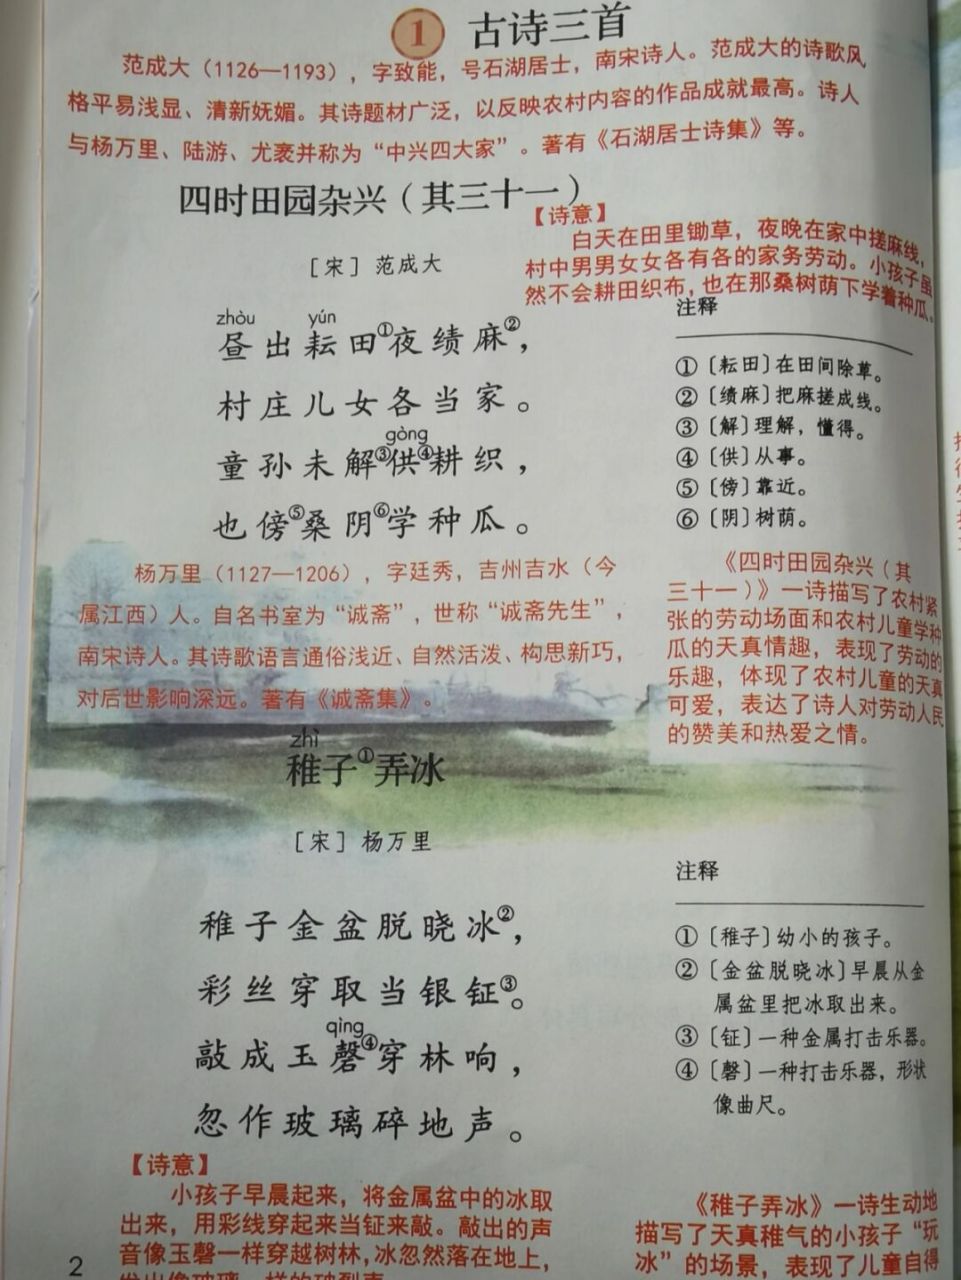 1 古诗三首
范成大（1126—1193），字致能，号石湖居士，南宋诗人。范成大的诗歌风
格平易浅显、清新妩媚。其诗题材广泛，以反映农村内容的作品成就最高。诗人
与杨万里、陆游、尤袤并称为“中兴四大家”。著有《石湖居士诗集》等。
四时田园杂兴（其三十一）
［宋］范成大
【诗意】
白天在田里锄草，夜晚在家中搓麻线，
村中男男女女各有各的家务劳动。小孩子虽
然不会耕田织布，也在那桑树荫下学着种瓜。
zhòu yún
昼出耘田①夜绩麻②，
村庄儿女各当家。
gòng
童孙未解③供④耕织，
也傍⑤桑阴⑥学种瓜。
注释
①〔耘田〕在田间除草。
②〔绩麻〕把麻搓成线。
③〔解〕理解，懂得。
④〔供〕从事。
⑤〔傍〕靠近。
⑥〔阴〕树荫。
杨万里（1127—1206），字廷秀，吉州吉水（今
属江西）人。自名书室为“诚斋”，世称“诚斋先生”，
南宋诗人。其诗歌语言通俗浅近、自然活泼、构思新巧，
对后世影响深远。著有《诚斋集》。
《四时田园杂兴（其
三十一）》一诗描写了农村紧
张的劳动场面和农村儿童学种
瓜的天真情趣，表现了劳动的
乐趣，体现了农村儿童的天真
可爱，表达了诗人对劳动人民
的赞美和热爱之情。
zhì
稚子①弄冰
［宋］杨万里
稚子金盆脱晓冰②，
彩丝穿取当银钲③。
qìng
敲成玉磬④穿林响，
忽作玻璃碎地声。
注释
①〔稚子〕幼小的孩子。
②〔金盆脱晓冰〕早晨从金
属盆里把冰取出来。
③〔钲〕一种金属打击乐器。
④〔磬〕一种打击乐器，形状
像曲尺。
【诗意】
小孩子早晨起来，将金属盆中的冰取
出来，用彩线穿起来当钲来敲。敲出的声
音像玉磬一样穿越树林，冰忽然落在地上，
《稚子弄冰》一诗生动地
描写了天真稚气的小孩子“玩
冰”的场景，表现了儿童自得
2